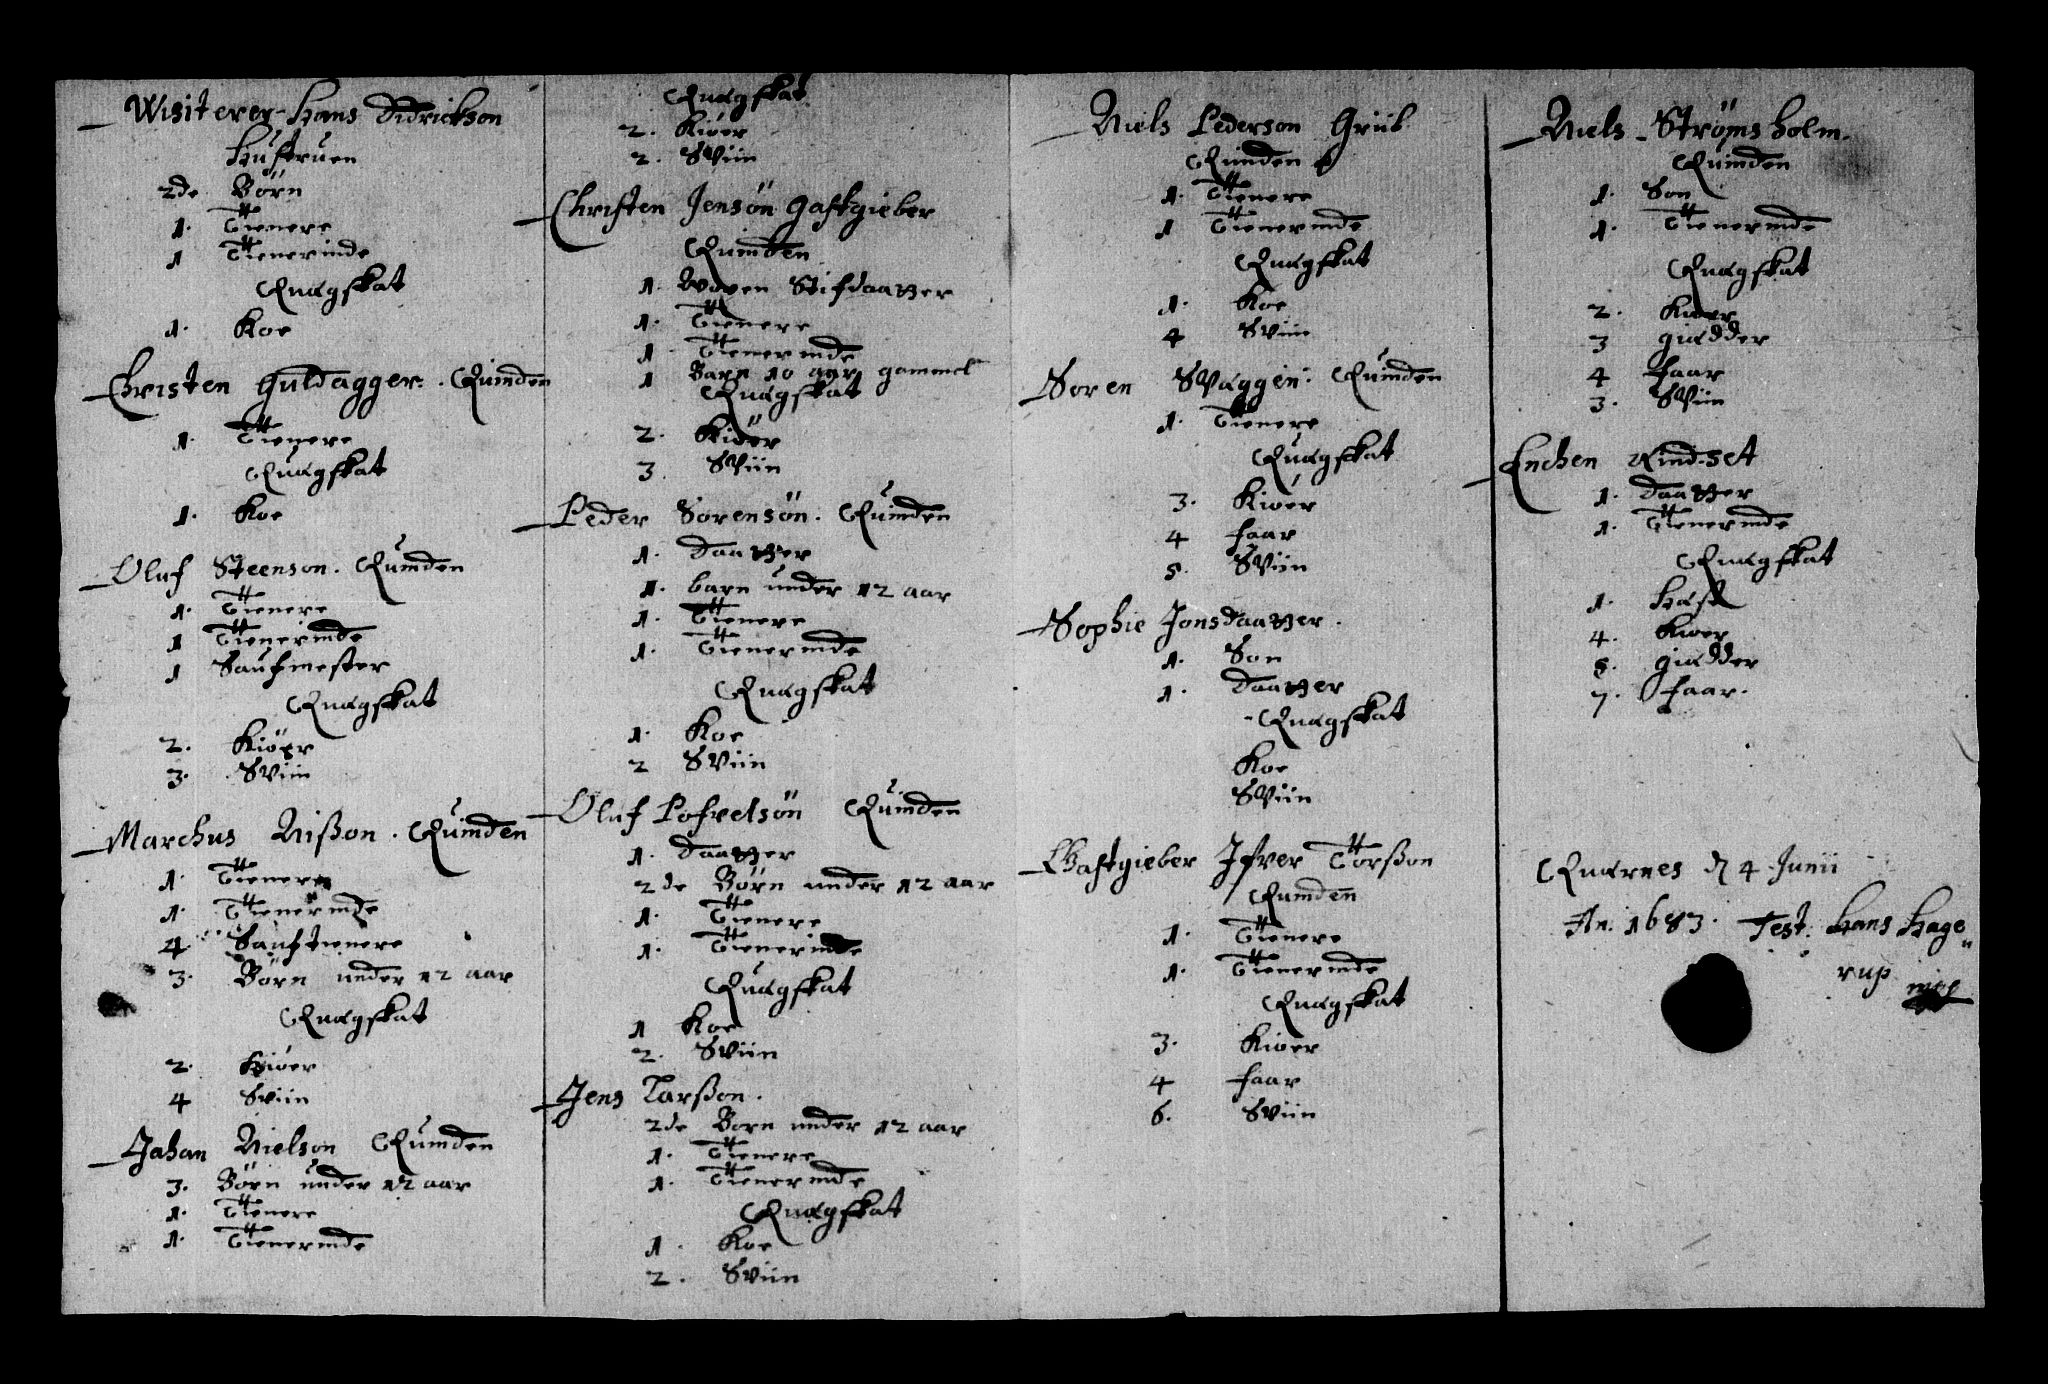 Wisiterer Hans Didrickson
Hustruen
2de Börn
1. Tienere
1 Tienerinde
Quægskat
1. Koe
Christen Guldagger. Quinden
1. Tienere
Quægskat
1. Koe
Oluf Steenson. Quinden
1. Tienere
1 Tienerinde
1 Saufmester
Quægskat
2. Kiöer
3. Sviin
Marchus Nißon. Quinden
1. Tienere
1. Tienerinde
4 Sauftienere
3. Börn under 12 aar
Quægskat
2. Kiöer
4 Sviin
Jahan Nielson Quinden
3. Börn under 12 aar
1. Tienere
1. Tienerinde
Quægskat
2. Kiöer
2. Sviin
Christen Jensön Gastgieber
Quinden
1. Voxen Stifdaatter
1. Tienere
1. Tienerinde
1 Barn 10 aar gammel
Quægskat
2. Kiöer
3. Sviin
Peder Sorensön. Quinden
1. Daatter
1. barn under 12 aar
1. Tienere
1. Tienerinde
Quægskat
1. Koe
2 Sviin
Oluf Pofvelsön Quinden
1. Daatter
2de Börn under 12 aar
1. Tienere
1. Tienerinde
Quægskat
1 Koe
2. Sviin
Jens Larßon.
2de Born under 12 aar
1. Tienere
1. Tienerinde
Quægskat
1. Koe
2. Sviin
Niels Pederson Grüb
Quinden
1. Tienere
1 Tienerinde
Quægskat
1. Koe
4 Sviin
Soren Svaggen. Quinden
1. Tienere
Quægskat
3. Kiöer
4 faar
5. Sviin
Sophie Jonsdaatter.
1. Son
1. Daatter
Quægskat
Koe
Sviin
Gastgieber Ifver Torßon
Quinden
1. Tienere
1. Tienerinde
Quægskat
3. Kioer
4 faar
6. Sviin
Niels Strømsholm.
Quinden
1. Son
1. Tienerinde
Quægskat
2. Kiøer
3 giædder
4 faar
3. Sviin
Enchen Rindset
1. Daatter
1. Tienerinde
Quægskat
1. Hæst
4. Kioer
5. giædder
7. faar.
Quærnes d 4 Junii
An. 1683. Test. Hans Hage
rup